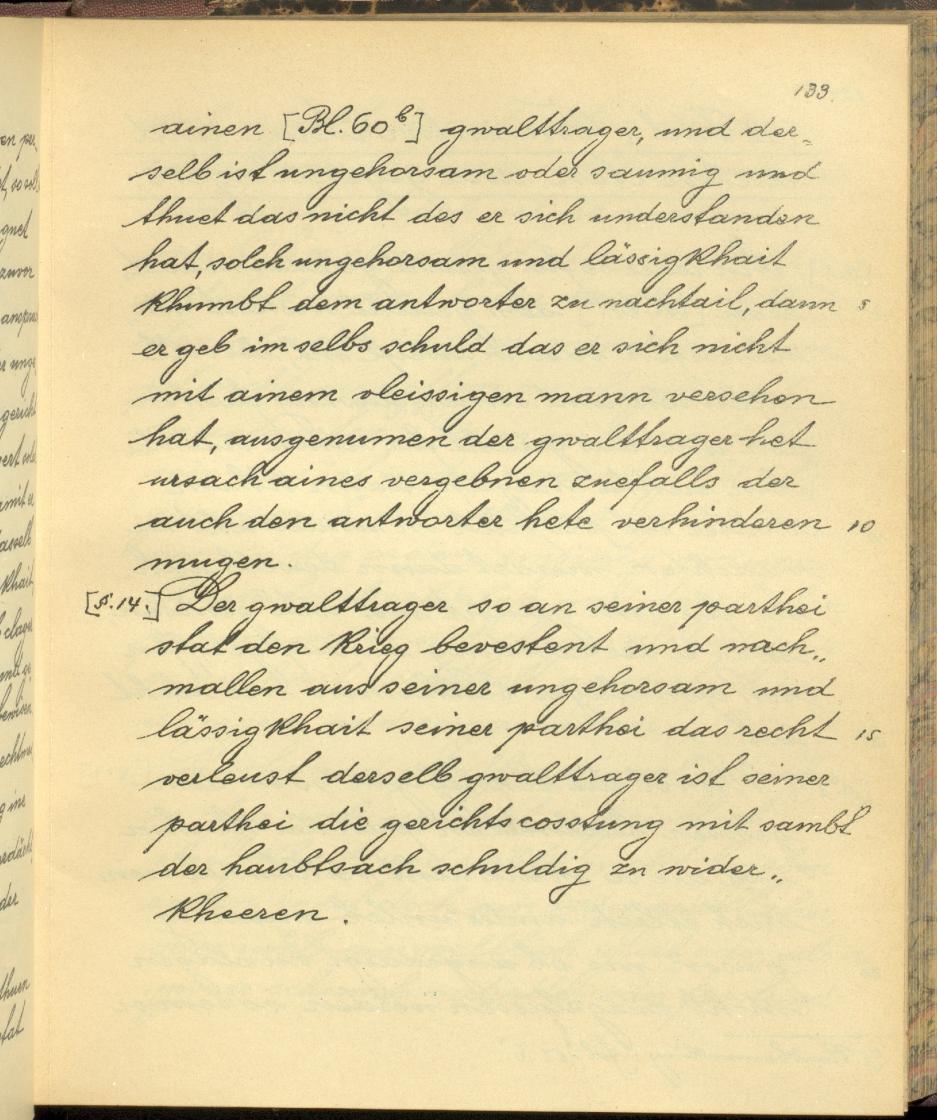 133.
ainen [Bl. 60ᵇ] gwalttrager, und der„
selb ist ungehorsam oder saumig und
thuet das nicht des er sich understanden
hat, solch ungehorsam und lässigkhait
khumbt dem antworter zu nachtail, dann 5
er geb im selbs schuld das er sich nicht
mit ainem vleissigen mann versehen
hat, ausgenumen der gwalttrager het
ursach aines vergebnen zuefalls der
auch den antworter hete verhinderen 10
mugen.
[§. 14.] Der gwalttrager so an seiner parthei
stat den krieg bevestent und nach„
mallen aus seiner ungehorsam und
lässigkhait seiner parthei das recht 15
verleust derselb gwalttrager ist seiner
parthei die gerichtscosstung mit sambt
der haubtsach schuldig zu wider„
kheeren.